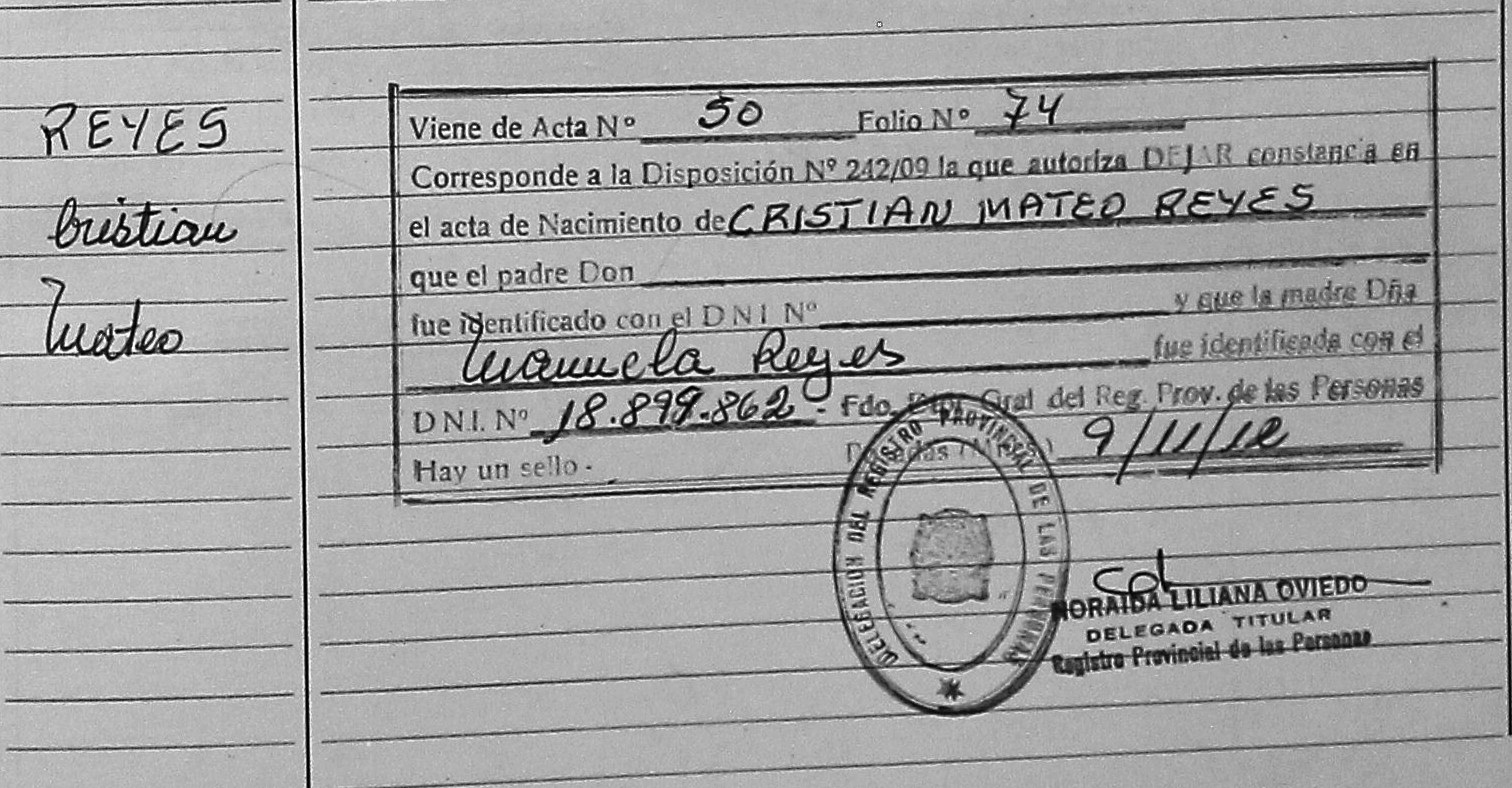 REYES
Cristian
Mateo
Viene de Acta Nº 50 Folio Nº 74
Corresponde a la Disposición Nº 242/09 la que autoriza DEJAR constancia en
el acta de Nacimiento de CRISTIAN MATEO REYES
que el padre Don
fue identificado con el D N I Nº y que la madre Dña
Manuela Reyes fue identificada con el
D N I. Nº 18.899.862 - Fdo. Gral del Reg. Prov. de las Personas
Hay un sello - 9/11/12
DELEGACION DEL REGISTRO PROVINCIAL DE LAS PERSONAS
NORAIDA LILIANA OVIEDO
DELEGADA TITULAR
Registro Provincial de las Personas